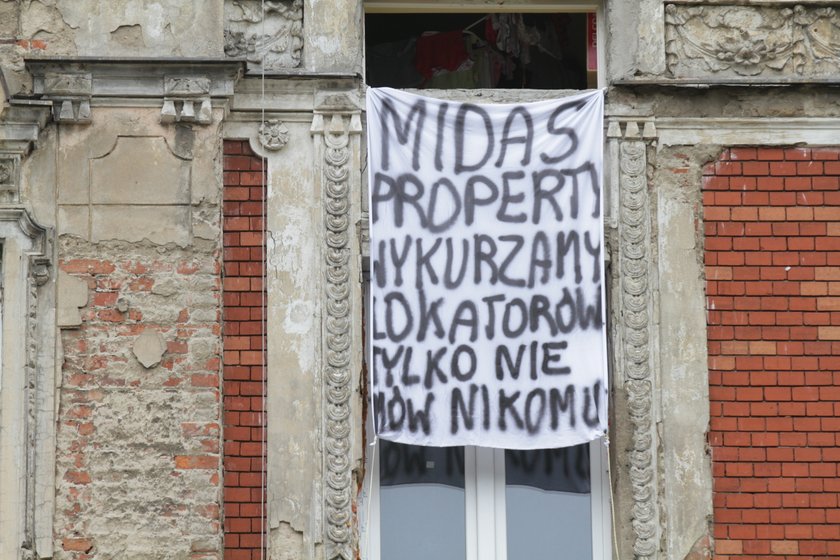 MIDAS
PROPERTY
WYKURZAMY
LOKATORÓW
TYLKO NIE
MÓW NIKOMU